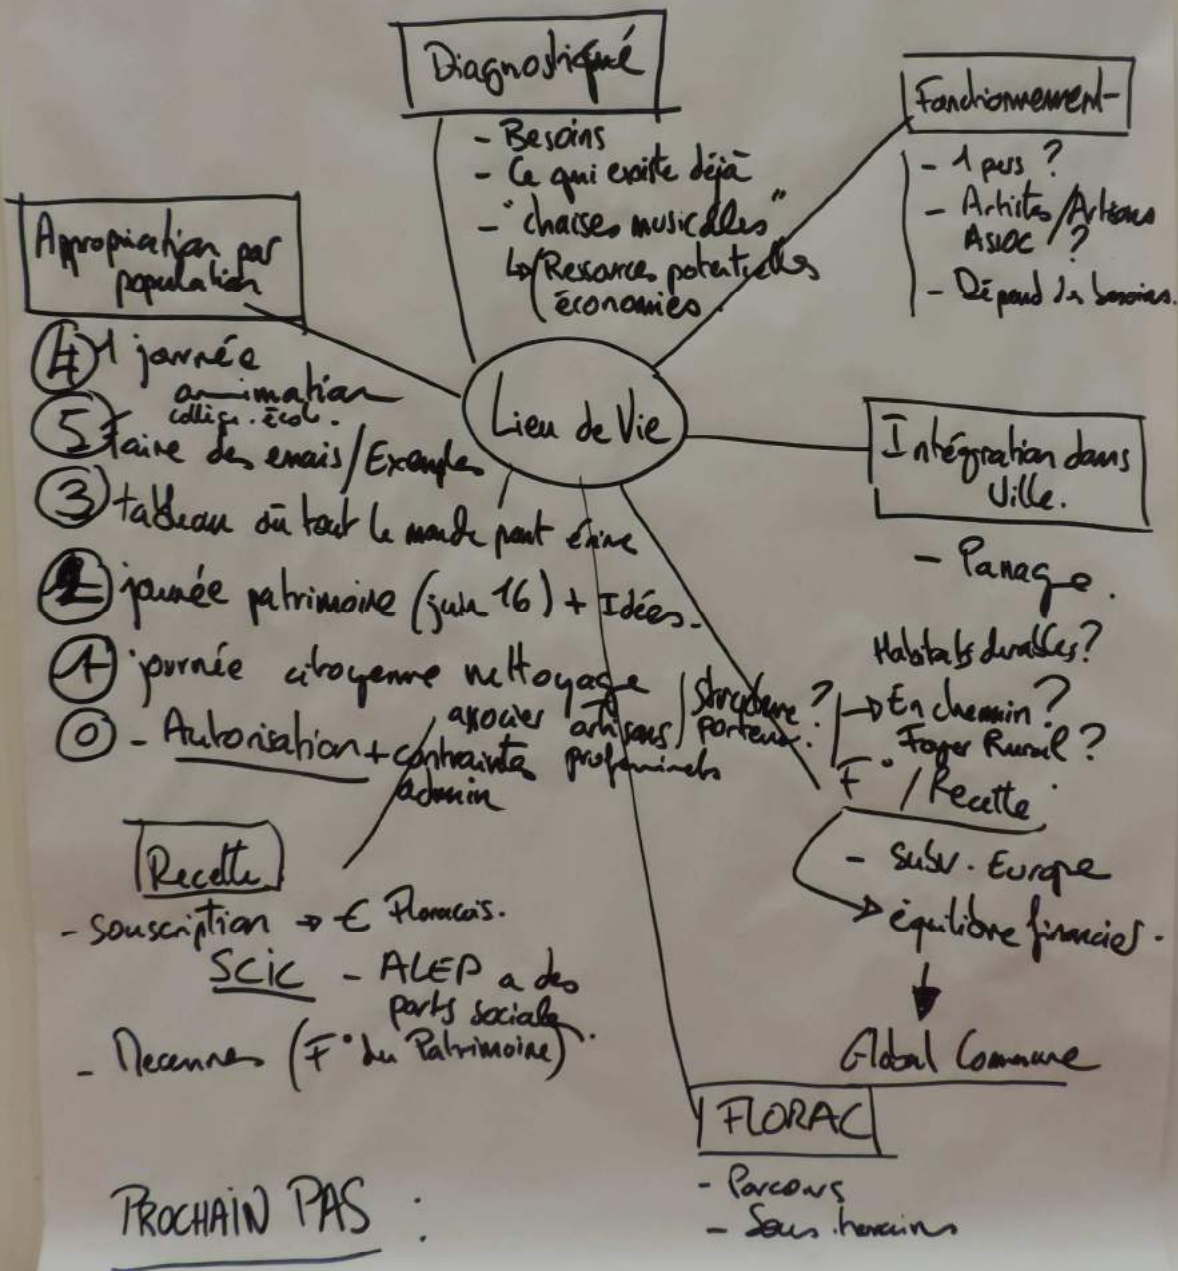 Diagnostiqué
- Besoins
- Ce qui existe déjà
- "chaises musicales"
↳ Ressources potentielles
économies
Fonctionnement
- 1 pers ?
- Artistes/Artisans
Assoc / ?
- Dépend des besoins.
Appropriation par
population
4 1 journée
animation
collège. école.
5 faire des essais/Exemples
3 tableau où tout le monde peut écrire
2 journée patrimoine (juin 16) + Idées
1 journée citoyenne nettoyage
associer artisans
professionnels
0 - Autorisation + contraintes
admin
Lieu de Vie
Intégration dans
Ville.
Habitats durables?
Structure ?
porteur ?
→ En chemin ?
Foyer Rural ?
F° / Recette
- Subv. Europe
→ équilibre financier.
Global Commune
Recette
- Souscription → € Floracois.
SCIC - ALEP a des
parts sociales
- Mecennes (F° du Patrimoine)
FLORAC
- Parcours
PROCHAIN PAS :